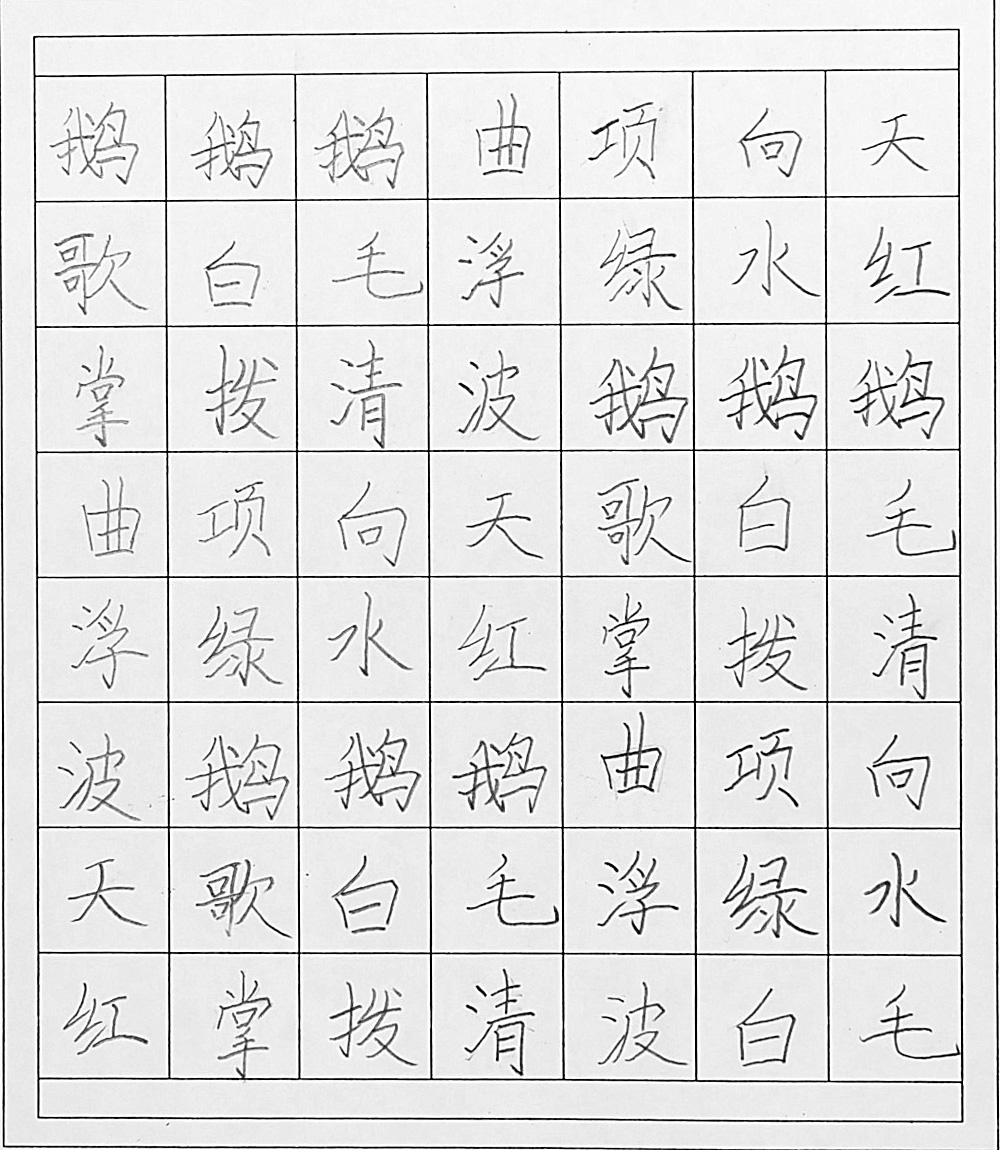 鹅鹅鹅曲项向天
歌白毛浮绿水红
掌拨清波鹅鹅鹅
曲项向天歌白毛
浮绿水红掌拨清
波鹅鹅鹅曲项向
天歌白毛浮绿水
红掌拨清波白毛